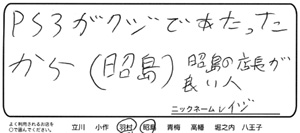 PS3がクジであたった
から(昭島)昭島の店長が
良い人
ニックネーム レイジ
よく利用されるお店を
○で選んでください。 立川 小作 羽村 昭島 青梅 高幡 堀之内 八王子